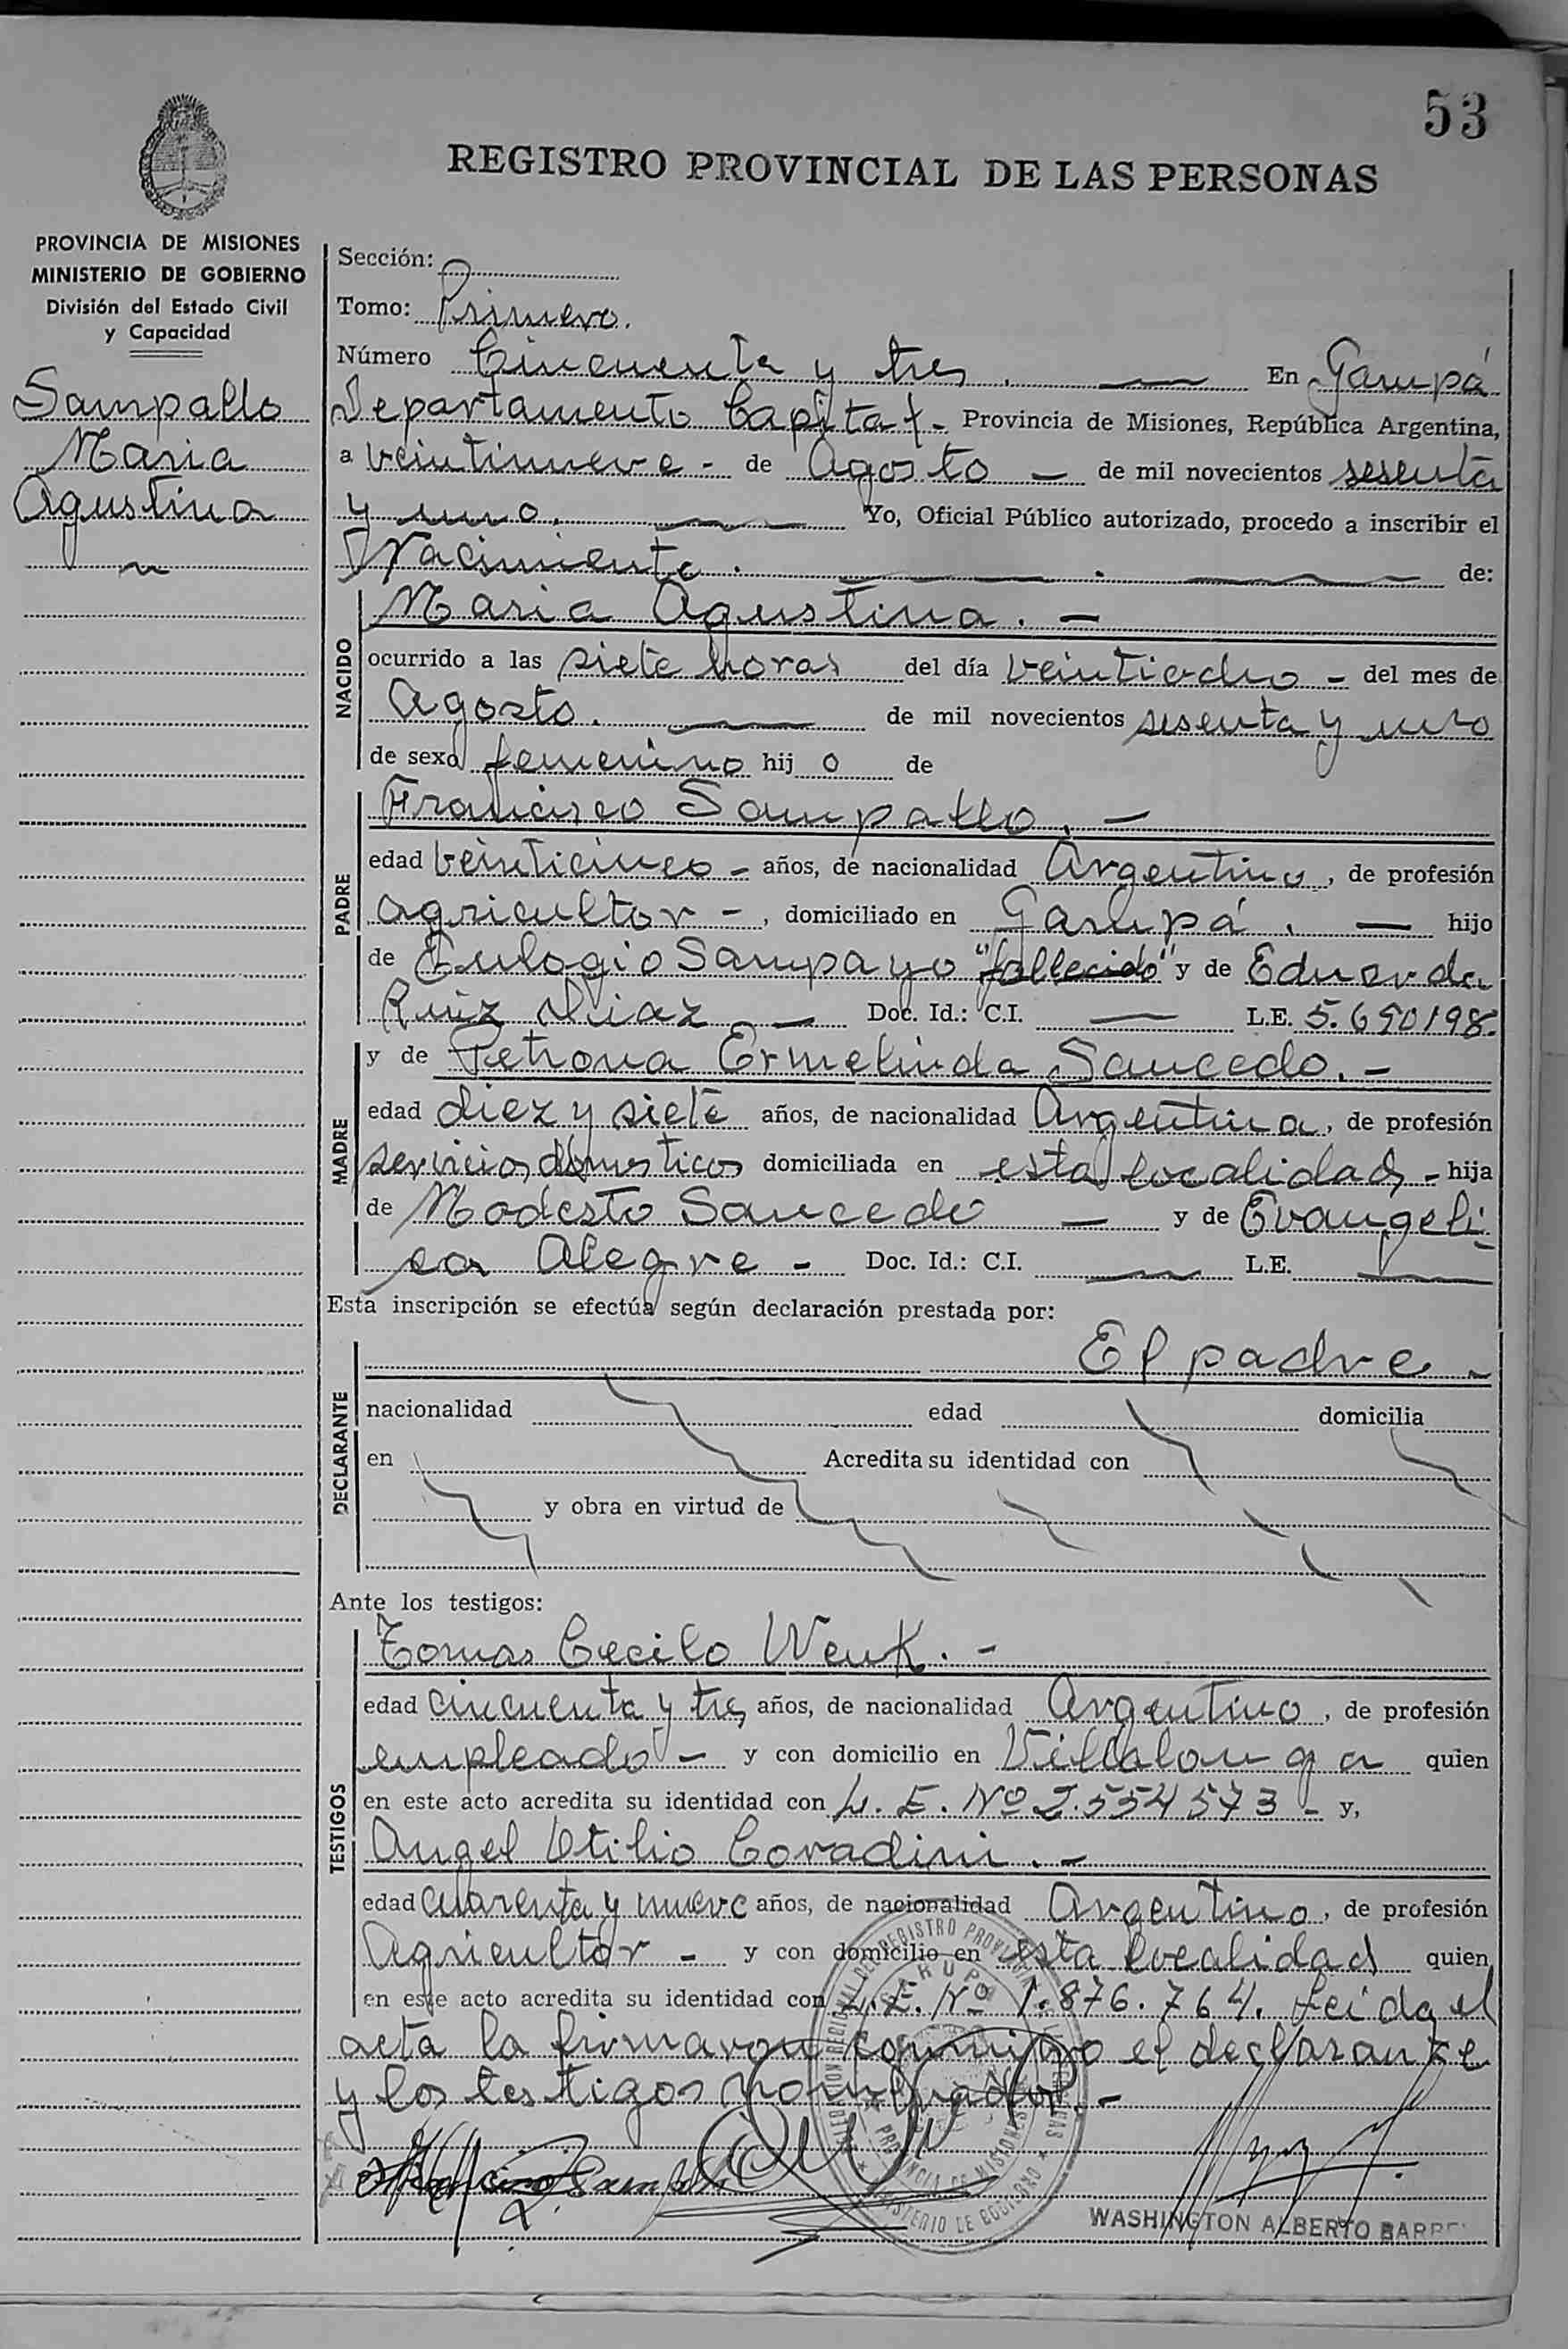 53
REGISTRO PROVINCIAL DE LAS PERSONAS
PROVINCIA DE MISIONES
MINISTERIO DE GOBIERNO
División del Estado Civil
y Capacidad
Sampallo
Maria
Agustina
Sección:
Tomo: Primero.
Número Cincuenta y tres. — En Garupá
Departamento Capital - Provincia de Misiones, República Argentina,
a veintinueve - de Agosto — de mil novecientos sesenta
y uno. — Yo, Oficial Público autorizado, procedo a inscribir el
Nacimiento. — . — de:
NACIDO
Maria Agustina. —
ocurrido a las siete horas del día veintiocho - del mes de
Agosto. — de mil novecientos sesenta y uno
de sexo femenino hij o de
PADRE
Francisco Sampallo. —
edad veinticinco - años, de nacionalidad Argentino, de profesión
agricultor -, domiciliado en Garupá. — hijo
de Eulogio Sampayo "fallecido" y de Eduarda
Ruiz Diaz — Doc. Id.: C.I. — L.E. 5.690198.
MADRE
y de Petrona Ermelinda Saucedo. -
edad diez y siete años, de nacionalidad Argentina, de profesión
servicios domesticos domiciliada en esta localidad, - hija
de Modesto Saucedo — y de Evangeli-
ca Alegre - Doc. Id.: C.I. — L.E. —
Esta inscripción se efectúa según declaración prestada por:
DECLARANTE
El padre -
nacionalidad edad domicilia
en Acredita su identidad con
y obra en virtud de
Ante los testigos:
TESTIGOS
Tomas Cecilo Wenk. -
edad cincuenta y tres años, de nacionalidad Argentino, de profesión
empleado - y con domicilio en Villalonga quien
en este acto acredita su identidad con L. E. Nº 2.554573 - y,
Angel Otilio Coradini. -
edad cuarenta y nueve años, de nacionalidad Argentino, de profesión
Agricultor - y con domicilio en esta localidad quien
en este acto acredita su identidad con L.E. Nº 1.876.764. Leida el
acta la firmaron conmigo el declarante
y los testigos nombrados. -
Francisco Sampallo
WASHINGTON ALBERTO